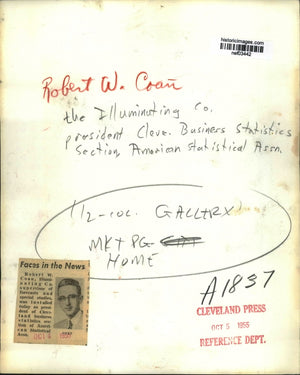 historicimages.com
nef03442
Robert W. Coan
the Illuminating Co.
president Cleve. Business Statistics
Section, American Statistical Assn.
1/2-col. GALLERY
MKT PG
HOME
A1837
Faces in the News
Robert W.
Coan, Illumi-
nating Co.
supervisor of
forecasts and
special studies,
was installed
today as presi-
dent of
Cleveland
business
statistics sec-
tion of Ameri-
can Statistical
Assn.
OCT 4 1955
CLEVELAND PRESS
OCT 5 1955
REFERENCE DEPT.